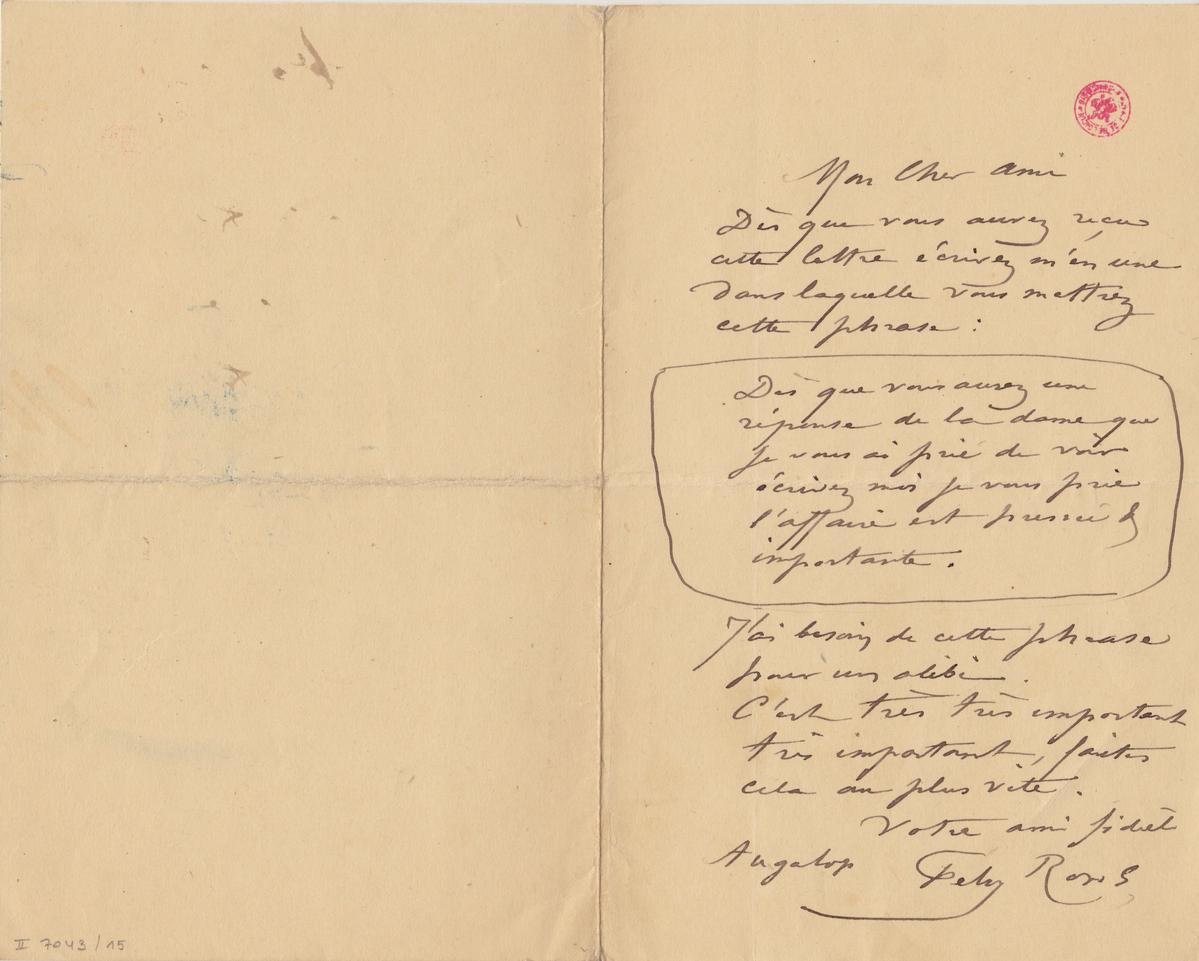 Mon Cher ami
Dès que vous aurez reçu
cette lettre écrivez m'en une
dans laquelle vous mettrez
cette phrase :
Dès que vous aurez une
réponse de la dame que
je vous ai prié de voir
écrivez moi je vous prie
l'affaire est pressée &
importante.
J'ai besoin de cette phrase
pour un alibi.
C'est très très important
très important, faites
cela au plus vite.
Votre ami fidèl
Augalop
Fely Rops
II 7043/15